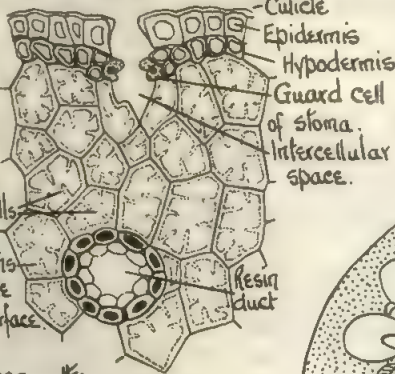 Cuticle
Epidermis
Hypodermis
Guard cell
of stoma.
Intercellular
space.
Resin
duct